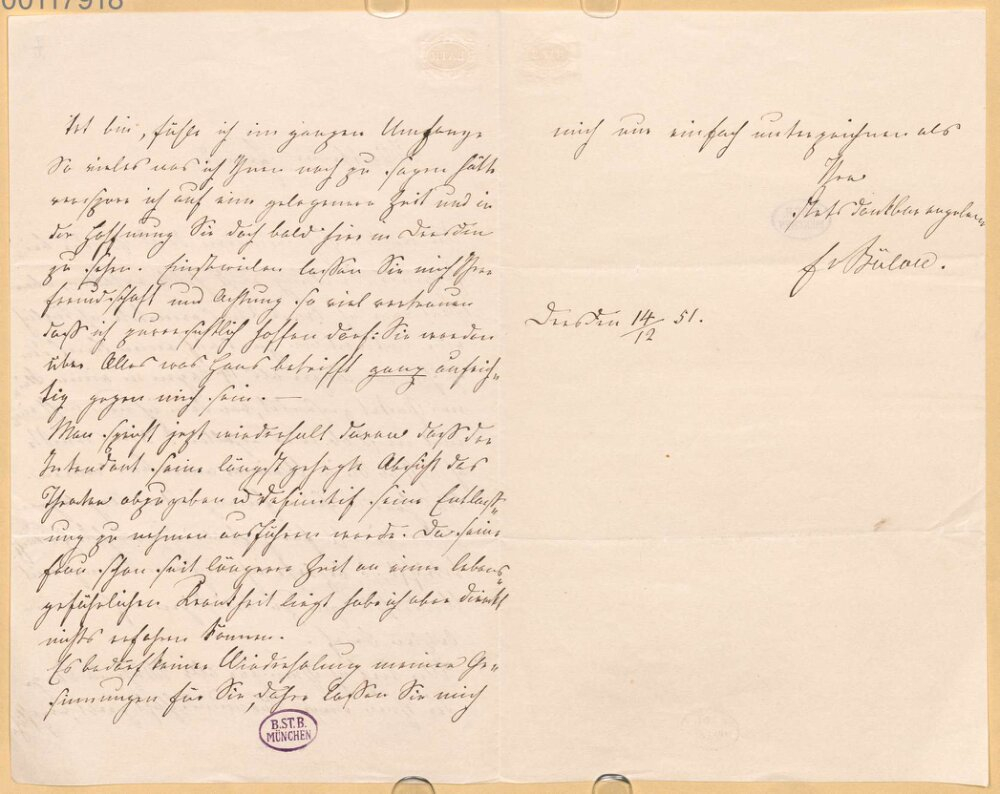 00117918
tet bin, fühle ich im ganzen Umfange
So vieles was ich Ihnen noch zu sagen hätte
verspare ich auf eine gelegenere Zeit und in
der Hoffnung Sie doch bald hier in Dresden
zu sehen. Einstweilen lassen Sie mich Ihrer
Freundschaft und Achtung so viel vertrauen
daß ich zuversichtlich hoffen darf: Sie werden
über Alles was Hans betrifft ganz aufrich-
tig gegen mich sein. —
Man spricht jezt wiederholt davon daß der
Intendant seine längst gehegte Absicht das
Theater abzugeben u definitif seine Entlass-
ung zu nehmen ausführen werde. Da seine
Frau schon seit längerer Zeit an einer lebens-
gefährlichen Krankheit liegt habe ich aber direkt
nichts erfahren können.
Es bedarf keiner Wiederholung meiner Ge-
sinnungen für Sie, daher lassen Sie mich
B.ST.B.
MÜNCHEN
mich nur einfach unterzeichnen als
Ihre
stets dankbar ergebene
F v Bülow.
Dresden 14/12 51.